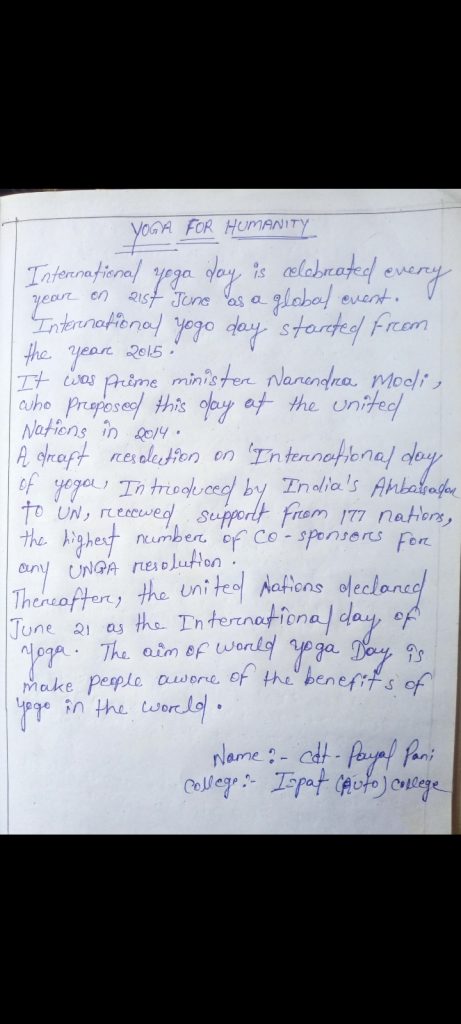 YOGA FOR HUMANITY
International yoga day is celebrated every
year on 21st June as a global event.
International yogo day started from
the year 2015.
It was prime minister Narendra Modi,
who proposed this day at the united
Nations in 2014.
A draft resolution on 'International day
of yoga, Introduced by India's Ambassador
to UN, received support from 177 nations,
the highest number of co-sponsors for
any UNGA resolution.
Thereafter, the united Nations declared
June 21 as the International day of
Yoga. The aim of world yoga Day is
make people aware of the benefits of
yogo in the world.
Name :- Cdt - Payal Pani
College :- Ispat (Auto) College